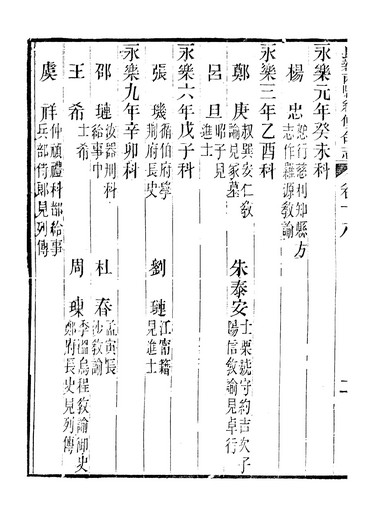 卷十八
二
永樂元年癸未科
楊忠 恕行慈利知縣方
志作雜源敎諭
永樂三年乙酉科
鄭庚 叔巽安仁敎
諭見冢墓
朱泰安 士栗號守約吉次子
陽信敎諭見卓行
呂旦 昭子見
進士
永樂六年戊子科
張璣 循伯府學
荆府長史
劉璉 江甯籍
見進士
永樂九年辛卯科
邵璉 汝器刑科
給事中
杜春 孟寅長
沙敎諭
王希 士希
周 季溫烏程敎諭御史
鄭府長史見列傳
虞祥 仲禎禮科都給事
兵部侍郎見列傳